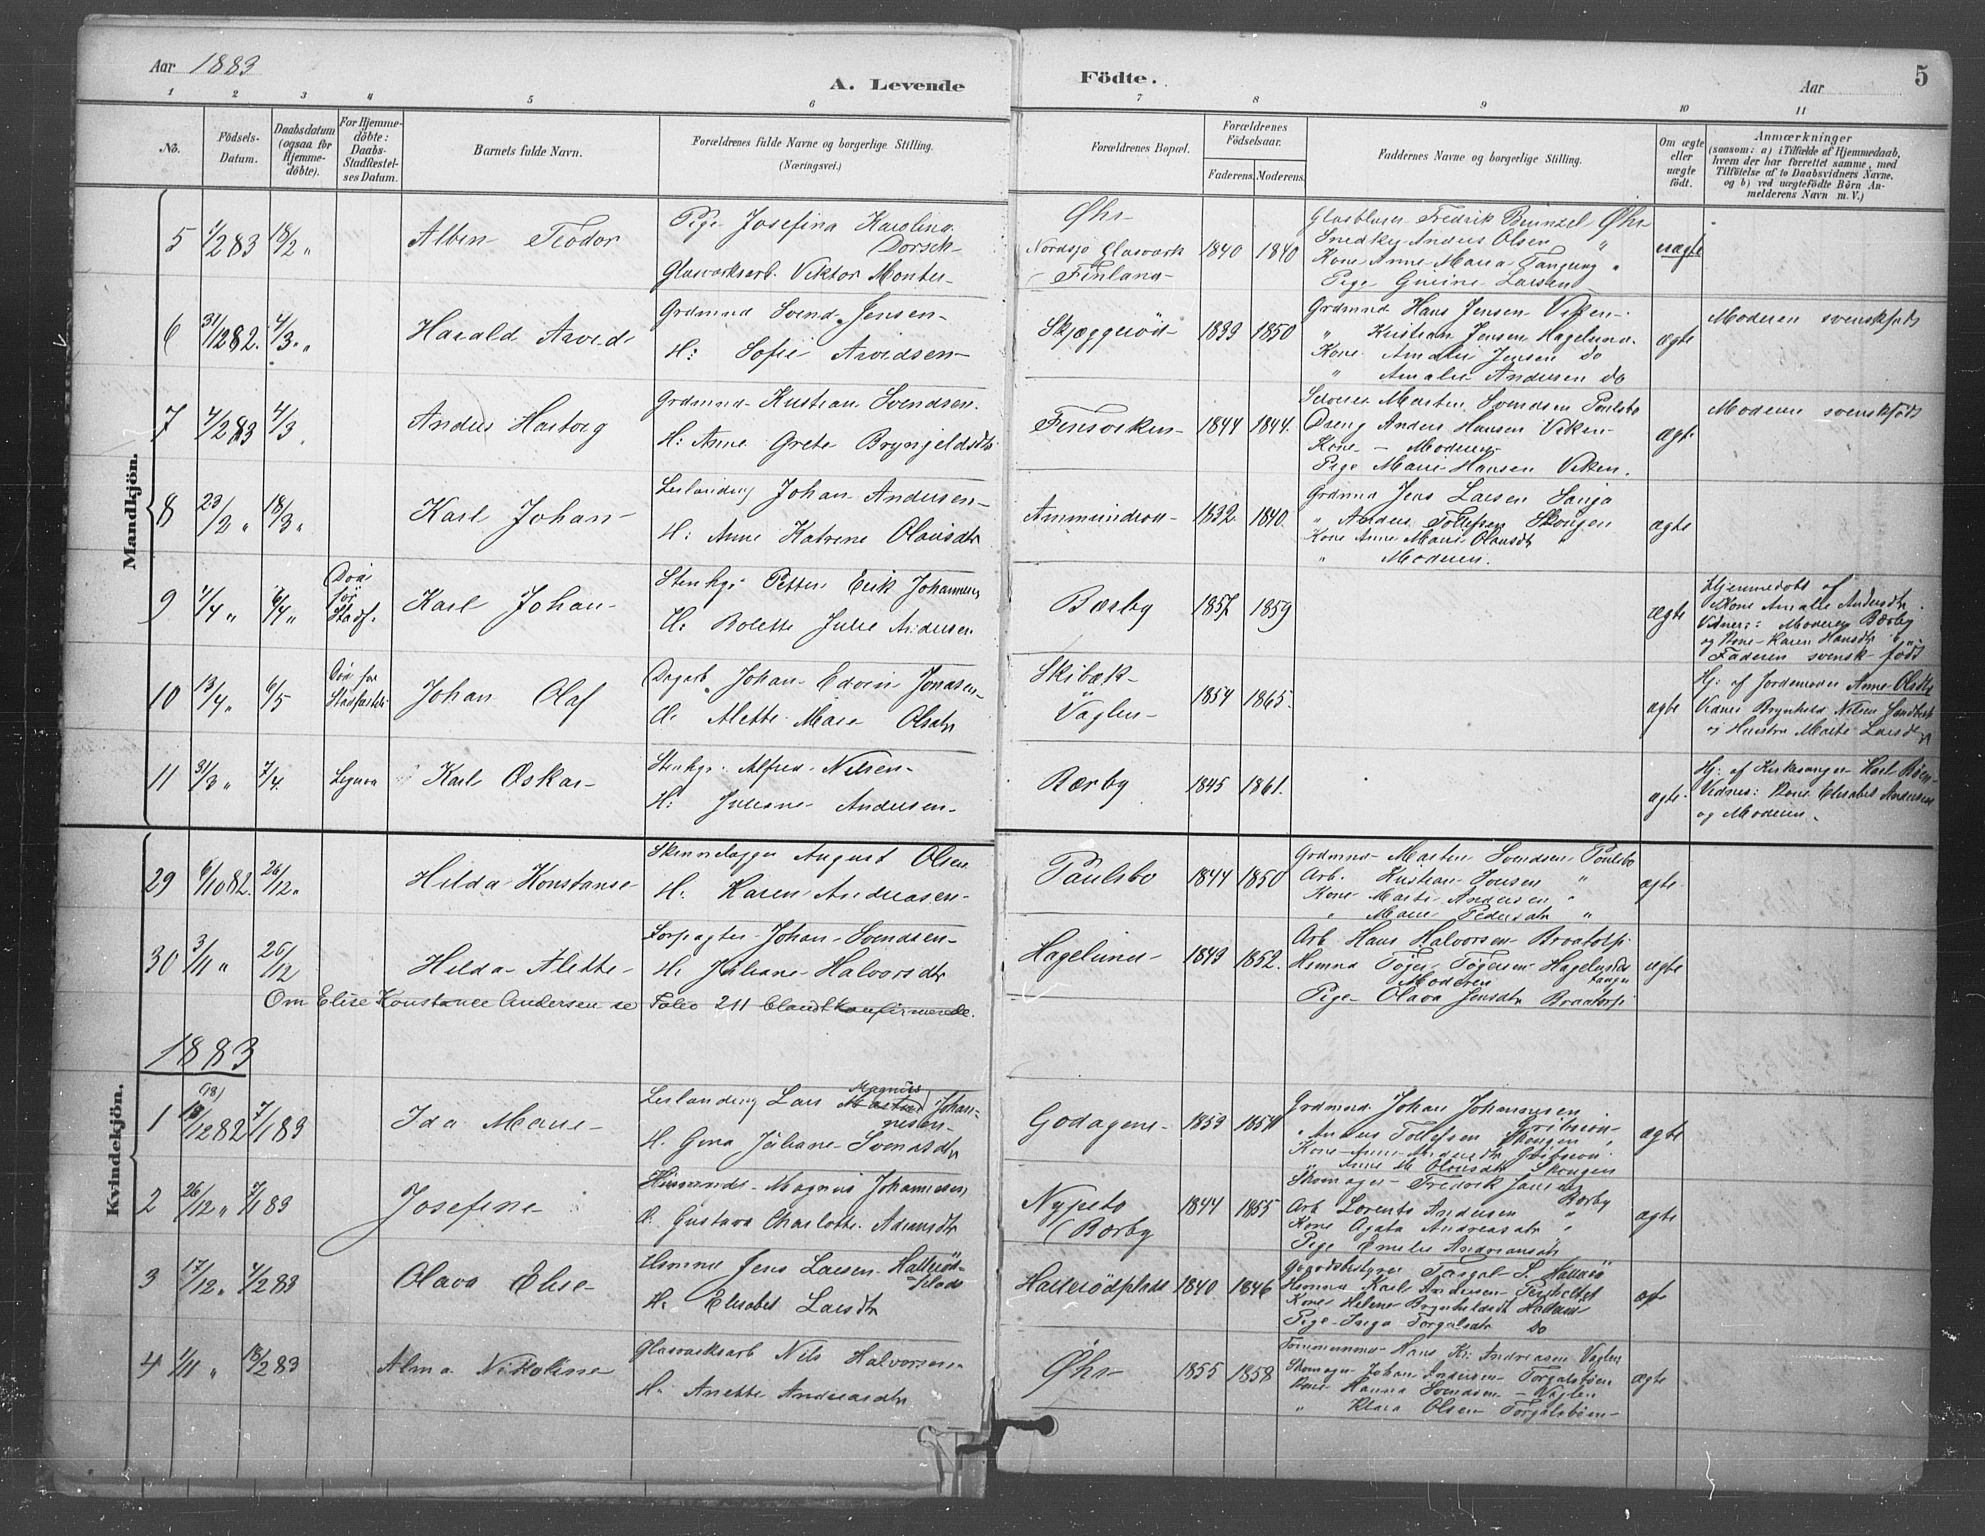 Aar 1883
A. Levende
Födte.
Aar
5
1 2 3 4 5 6 7 8 9 10 11
No.
Födsels-
Datum.
Daabsdatum
(ogsaa for
Hjemme-
döbte).
For Hjemme-
döbte:
Daabs-
Stadfæstel-
ses Datum.
Barnets fulde Navn.
Forældrenes fulde Navne og borgerlige Stilling.
(Næringsvei.)
Forældrenes Bopæl.
Forældrenes
Födselsaar.
Faderens. Moderens.
Faddernes Navne og borgerlige Stilling.
Om ægte
eller
uægte
födt.
Anmærkninger
(saasom: a) i Tilfælde af Hjemmedaab,
hvem der har forrettet samme, med
Tilföielse af to Daabsvidners Navne,
og b) ved uægtefödte Börn An-
melderens Navn m. V.)
Mandkjön.
5 1/2 83 18/2 „ Albin Teodor
Pige Josefina Karolina
Dorsch
Glasværksarb. Viktor Monter
Øhr
Nordsjø Glasværk
Finland
1840 1840
Glasblaser Fredrik Bunzel Øhr
Snedker Anders Olsen „
Kone Anne Maria Tangring „
Pige Gurine Larsen
uægte
6 31/12 82. 4/3 „ Harald Arvid
Grdmnd Svend Jensen
H: Sofie Arvidsen
Skjæggeröd 1839 1850
Grdmnd Hans Jensen Viken
„ Kristian Jensen Hagelund.
Kone Amalie Jensen do
„ Amalie Andersen do
ægte
Moderen svenskfödt
7 4/2 83 4/3 Anders Hartvig
Grdmnd Kristian Svendsen.
H: Anne Grete Bryngeldsdtr
Finsviken 1844 1844.
Marten Svendsen Poulsbo
Anders Hansen Viken
Kone – Moderen
Pige Marie Hansen Viken.
ægte
Moderen svenskfödt
8 23/2 „ 18/3 „ Karl Johan
Johan Andersen
H: Anne Katrine Olausdtr
Ammundröd 1832 1840.
Grdmnd Jens Larsen
„ Anders Tollefsen Skougen
Kone Anne Marie Olausdtr „
„ Moderen.
ægte
9 1/4 „ 6/4 „ Död
för
Stadf. Karl Johan
Stenhgr Petter Erik Johannesen
H: Bolette Julie Andersen
Bærby 1857 1859
ægte
Hjemmedöbt af
Kone Amalie Andersdtr
Vidner: Moderen Bærby
og Kone Karen Hansdtr „
Faderen svensk född
10 13/4 „ 6/5 Död før
Stadfæstels Johan Olaf
Dagarb Johan Edvin Jonasen
H. Alette Marie Olsdtr
Skibæk
Vaglen
1854 1865.
ægte
Hj: af Jordemoder Anne Olsdtr
Vidner Brynhild Nilsen
og Hustru Marte Larsdtr
11 31/3 „ 7/4. Karl Oskar
Stenhgr. Alfred Nilsen
H: Juliane Andersen
Bærby 1845 1861.
ægte.
Hj: af Kirkesanger Karl Bøen
Vidner: Kone Elisabet Andersen
og Moderen.
Kvindekjön.
29 6/10 82. 26/12 „ Hilda Konstanse
Skindelægger August Olsen
H: Karen Andreasen
Paulsbo 1844 1850
Grdmnd Marten Svendsen Poulsbo
Arb. Kristian Jonsen „
Kone Marte Andersen „
„ Marie Pedersdtr „
ægte.
30 3/11 „ 26/12 Hilda Alette
Forpagter Johan Svendsen
H: Juliane Halvorsdtr
Hagelund 1849 1852.
Arb Hans Halvorsen Braatorp
Hsmnd Töger Tögersen Hagelund
Moderen
Pige Olava Jensdtr Braatorp
ægte
Om Elise Konstance Andersen se Folio 211 blandt konfirmerede.
1883
1 18/12 82 7/1 83 Ida Marie
(18)
Lars Magnus
Johan-
nesen
H. Gina Juliane Svendsdtr
Godagene 1859 1854
Grdmnd Johan Johannesen
„ Anders Tollefsen Skougen
Kone Anne Andersdtr
„ Anne M. Olausdtr Skougen
ægte
2 26/12 „ 7/1 83 Josefine
Magnus Johannesen
H. Gustava Charlotte Adamsdtr
Nypetö
(Bærby
1844 1855
Skomager Fredrik Jansen
Arb Lorents Andersen Bærby
Kone Agata Andreasdtr „
Pige Emelie Andreasdtr
ægte
3 17/12 „ 4/2 83 Olava Elise
Hsmnd Jens Larsen Halleröd-
plads
H. Elisabet Larsdtr
Hallerödplads 1840 1846
Gaardsbestyrer Torgal S. Halleröd
Hsmnd Karl Andersen
Kone Helene Brynhildsdt
Pige Inga Torgalsdtr do
ægte
4 1/11 „ 18/2 83 Alma Nikoline
Glasværksarb Nils Halvorsen
H: Anette Andreasdtr
Øhr 1855 1858
Tömmermnd Hans Kr. Andreasen Vaglen
Skomager Johan Andersen Torgalsbøen
Kone Hanna Svendsen – Vaglen
„ Klara Olsen Torgalsbøen
ægte